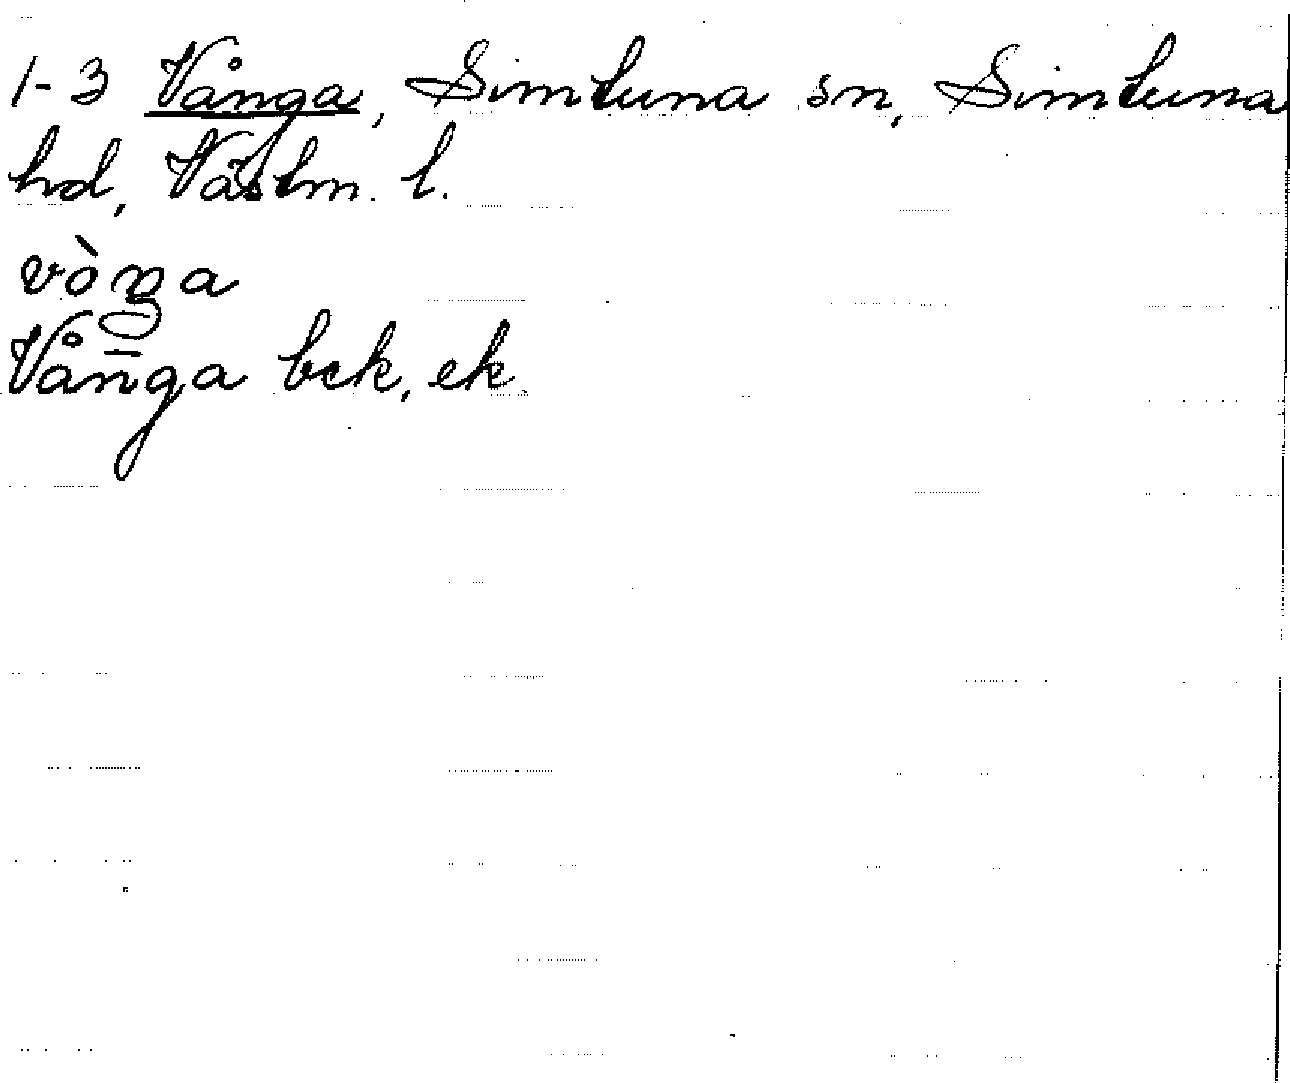 1-3 Vånga, Simtuna sn, Simtuna
hd, Västm. l.
vòŋa
Vån̄ga bek, ek.